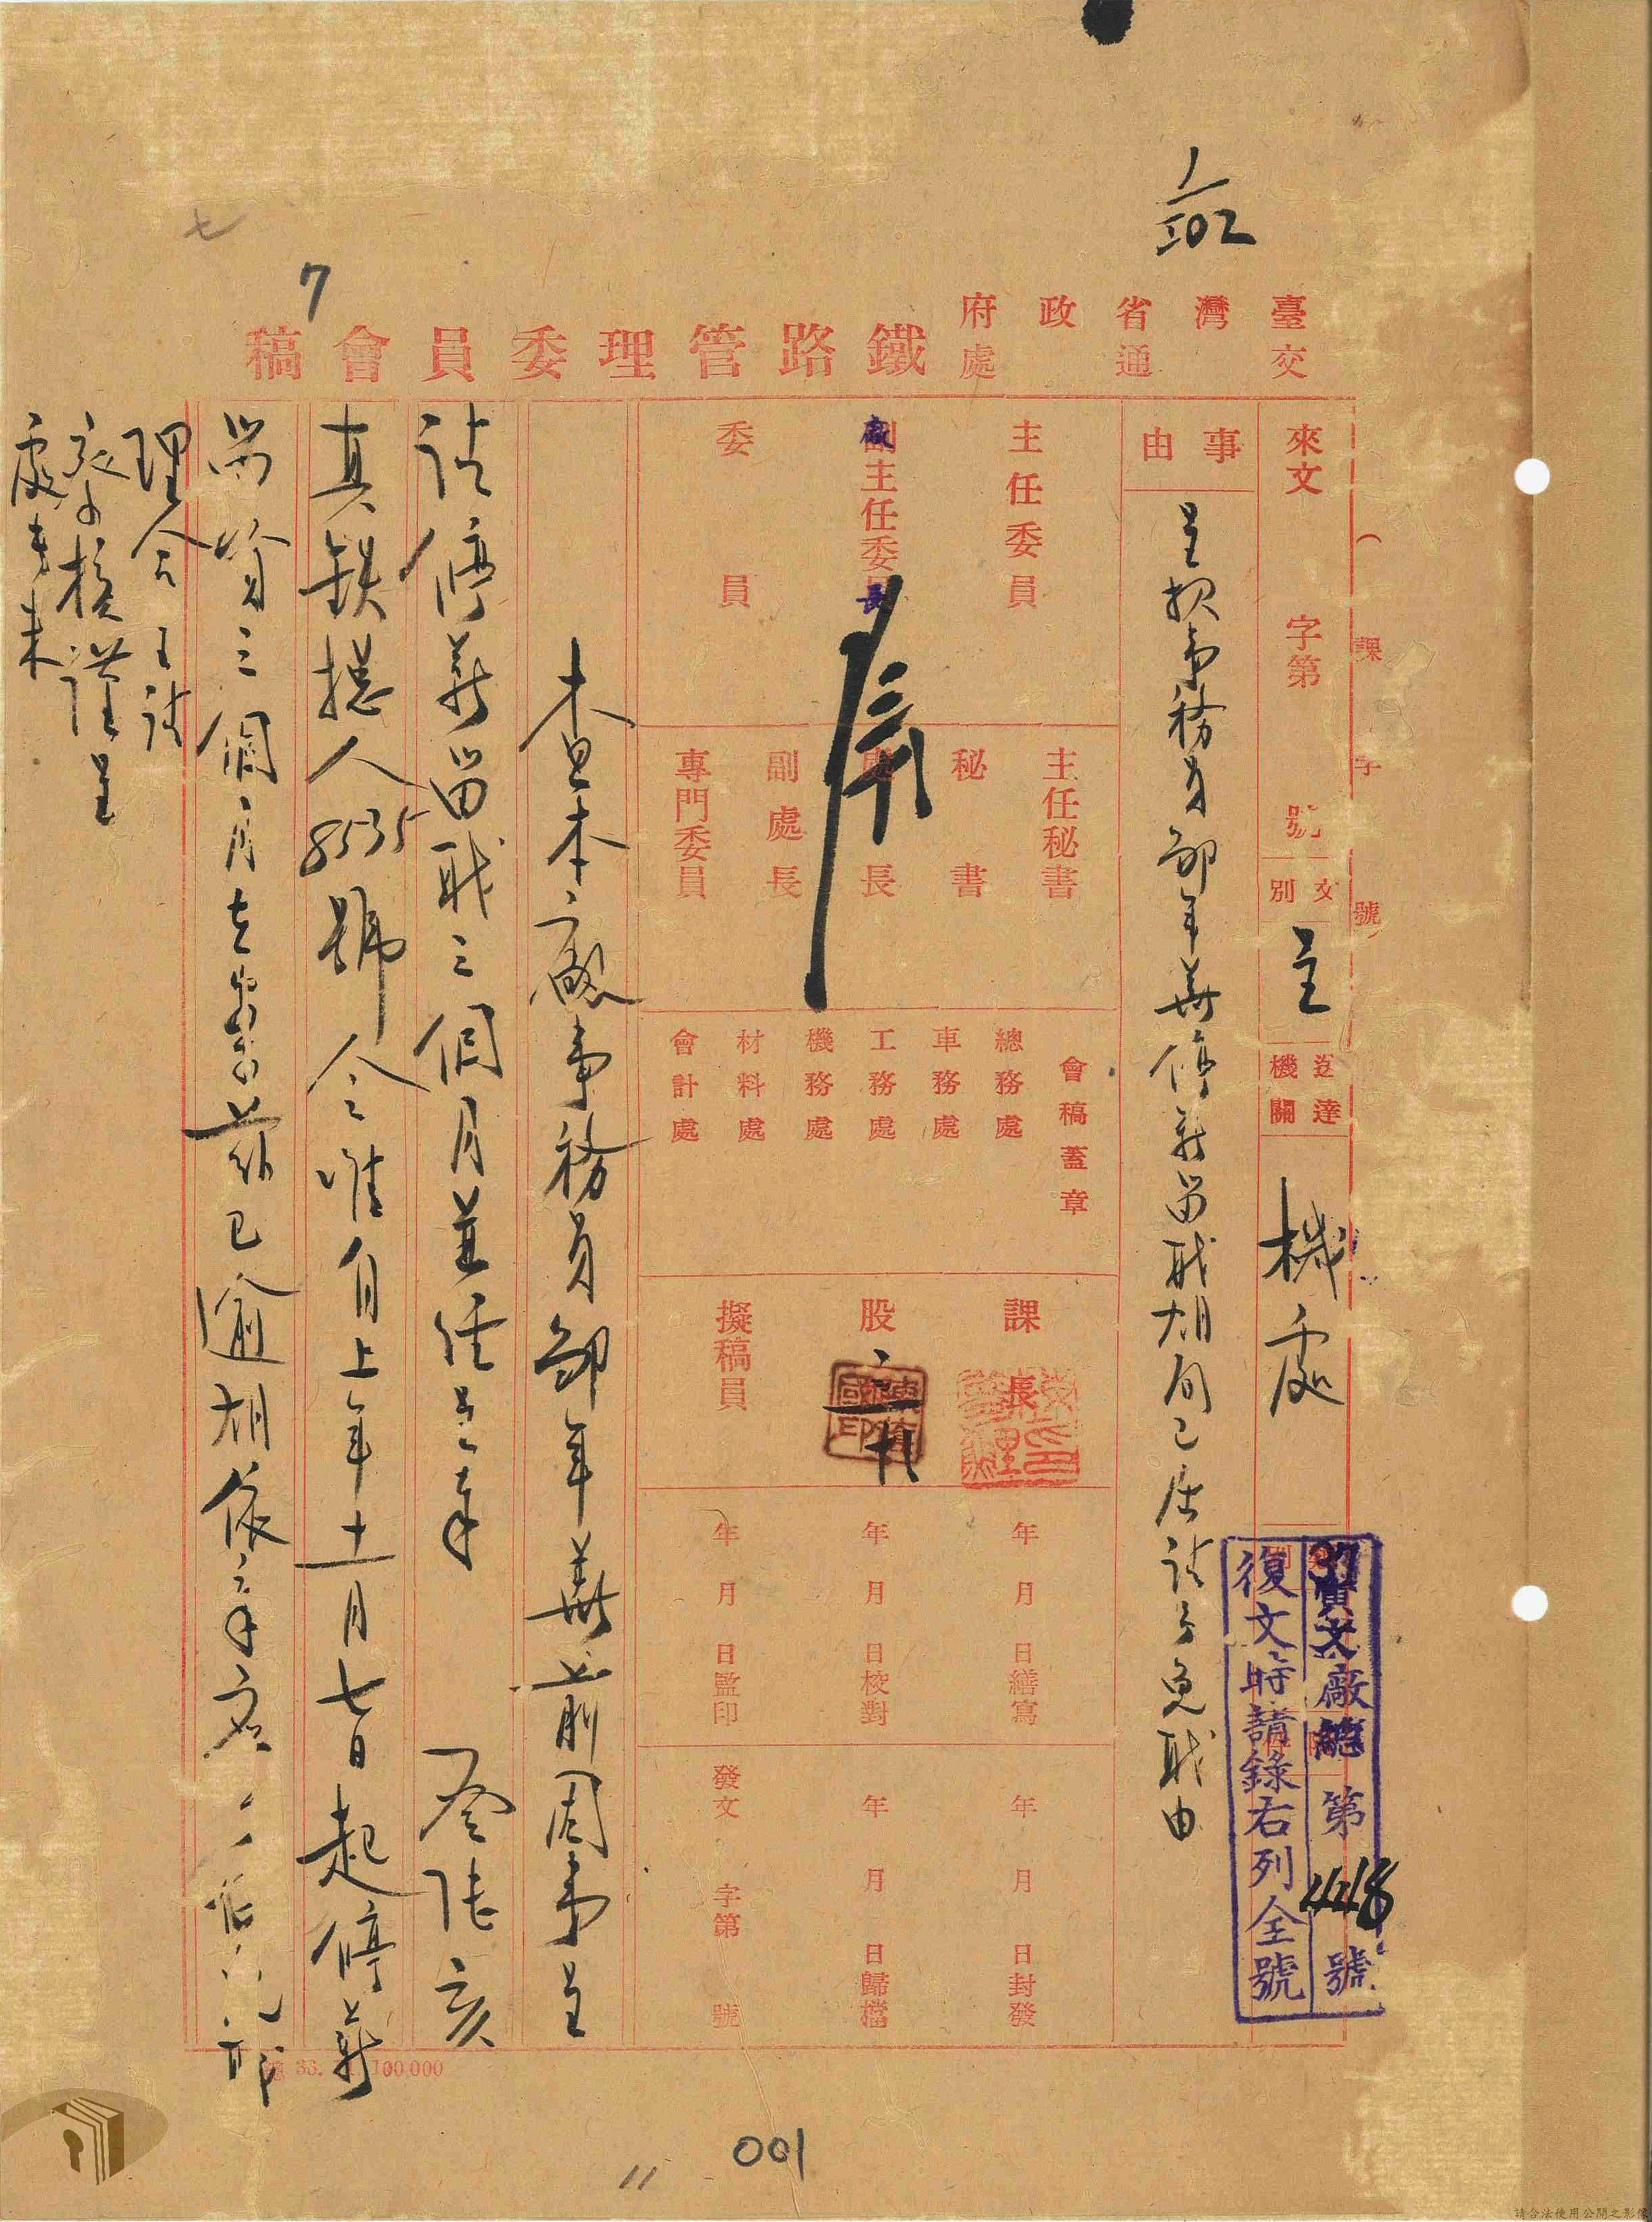 臺灣省政府
交通處
鐵路管理委員會稿
7
七
（ 課 字 號
來文 字第 號
文別 呈
送達機關 機處
文廠總第 號
復文時請錄右列全號
事由
呈報事務員鄒年華停薪留職期间已届請予免職由
主任委員
廠主任委員長
委員
主任秘書
秘書
處長
副處長
專門委員
會稿蓋章
總務處
車務處
工務處
機務處
材料處
會計處
課長
股
擬稿員
年月日繕寫
年月日校對
年月日監印
年月日封發
年月日歸檔
發文 字第 號
查本廠事務員鄒年華前因事呈
請停薪留職三個月並經呈奉
鈞處亥
真鉄機人8535號令准自上年十一月七日起停薪
留資三個月在案茲已逾期依章應
理合呈請
察核謹呈
處長朱
33. 100,000
001
11
請合法使用公開之影像